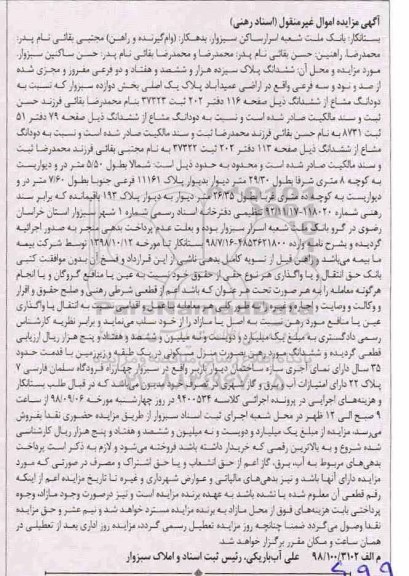 آگهی مزایده اموال غیرمنقول (اسناد رهنی)
بستانکار: بانک ملت شعبه اسرارساکن سبزوار، بدهکار: (وام‌گیرنده و راهن) مجتبی بقائی نام پدر:
محمدرضا. راهنین: حسن بقائی نام پدر: محمدرضا و محمدرضا بقائی نام پدر: حسن ساکنین سبزوار.
مورد مزایده و محل آن: ششدانگ پلاک سیزده هزار و ششصد و هفتاد و دو فرعی مفروز و مجزی شده
از صد و نود و سه فرعی واقع در اراضی عمیدآباد پلاک یک اصلی بخش دوازده سبزوار که نسبت به
دودانگ مشاع از ششدانگ ذیل صفحه ۱۱۶ دفتر ۲۰۲ ثبت ۳۷۳۲۳ بنام محمدرضا بقائی فرزند حسن
ثبت و سند مالکیت صادر شده است و نسبت به دودانگ مشاع از ششدانگ ذیل صفحه ۷۹ دفتر ۵۱
ثبت ۸۷۳۱ به نام حسن بقائی فرزند محمدرضا ثبت و سند مالکیت صادر شده است و نسبت به دودانگ
مشاع از ششدانگ ذیل صفحه ۱۱۳ دفتر ۲۰۲ ثبت ۳۷۳۲۲ به نام مجتبی بقائی فرزند محمدرضا ثبت
و سند مالکیت صادر شده است و محدود به حدود ذیل است: شمالا بطول ۵/۵۰ متر در و دیواریست
به کوچه ۸ متری شرقا بطول ۲۹/۳۰ متر دیوار بدیوار پلاک ۱۱۱۶۱ فرعی جنوبا بطول ۷/۶۰ متر در و
دیواریست به کوچه ده متری غربا بطول ۲۶/۳۵ متر دیوار به دیوار پلاک ۱۹۳ باقیمانده که برابر سند
رهنی شماره ۱۱۸۰۲۰-۹۲/۱۱/۱۷ تنظیمی دفترخانه اسناد رسمی شماره ۱ شهر سبزوار استان خراسان
رضوی در گرو بانک ملت شعبه اسرار سبزوار بوده و بعلت عدم پرداخت بدهی منجر به صدور اجرائیه
گردیده و بشرح نامه وارده ۴۸۵۳۶۲۱۸۰۰-۹۸/۷/۱۶ بستانکار تا مورخه ۱۳۹۸/۱۰/۱۲ توسط شرکت بیمه
ما بیمه می‌باشد و راهن قبل از تسویه کامل بدهی ناشی از این قرارداد و فسخ آن بدون موافقت کتبی
بانک حق انتقال و یا واگذاری هر نوع حقی از حقوق خود نسبت به عین یا منافع گروگان و یا انجام
هرگونه معامله را به هر صورت تحت هر عنوان که باشد اعم از قطعی شرطی رهنی و صلح حقوق و اقرار
و وکالت و وصایت و اجاره و غیره و به طور کلی هر معامله ناقل و اقدامی نسبت به انتقال یا واگذاری
عین یا منافع مورد رهن نسبت به اصل یا مازاد را از خود سلب می‌نماید و برابر نظریه کارشناس
رسمی دادگستری به مبلغ یک میلیارد و دویست و نه میلیون و ششصد و هفتاد و پنج هزار ریال ارزیابی
قطعی گردیده و ششدانگ مورد رهن بصورت منزل مسکونی در یک طبقه و زیرزمین با قدمت حدود
۳۵ سال دارای نمای آجری سازه ساختمان دیوار باربر واقع در سبزوار چهارراه فرودگاه سلمان فارسی ۷
پلاک ۲۲ دارای امتیازات آب و برق و گاز شهری که به صورت مسکونی می‌باشد که در قبال طلب بستانکار
و هزینه‌های اجرایی در پرونده اجرائی کلاسه ۹۴۰۰۵۳۴ در روز چهارشنبه مورخه ۹۸/۰۹/۰۶ از ساعت
۹ صبح الی ۱۲ ظهر در محل شعبه اجرای ثبت اسناد سبزوار از طریق مزایده حضوری نقدا بفروش
می‌رسد، مزایده از مبلغ یک میلیارد و دویست و نه میلیون و ششصد و هفتاد و پنج هزار ریال کارشناسی
شده شروع و به بالاترین رقمی که خریدار داشته باشد فروخته می‌شود و لازم به ذکر است پرداخت
بدهی‌های مربوط به آب، برق، گاز اعم از حق انشعاب و یا حق اشتراک و مصرف در صورتی که مورد
مزایده دارای آنها باشد و نیز بدهی‌های مالیاتی و عوارض شهرداری و غیره تا تاریخ مزایده اعم از اینکه
رقم قطعی آن معلوم شده یا نشده باشد به عهده برنده مزایده است و نیز درصورت وجود مازاد، وجوه
پرداختی بابت هزینه‌های فوق از محل مازاد به برنده مزایده مسترد خواهد شد و نیم عشر و حق مزایده
نقدا وصول می‌گردد ضمنا چنانچه روز مزایده تعطیل رسمی گردد، مزایده روز اداری بعد از تعطیلی در
همان ساعت و مکان مقرر برگزار خواهد شد.
م الف ۹۸/۱۰۰/۳۱۰۲ علی آب‌باریکی، رئیس ثبت اسناد و املاک سبزوار